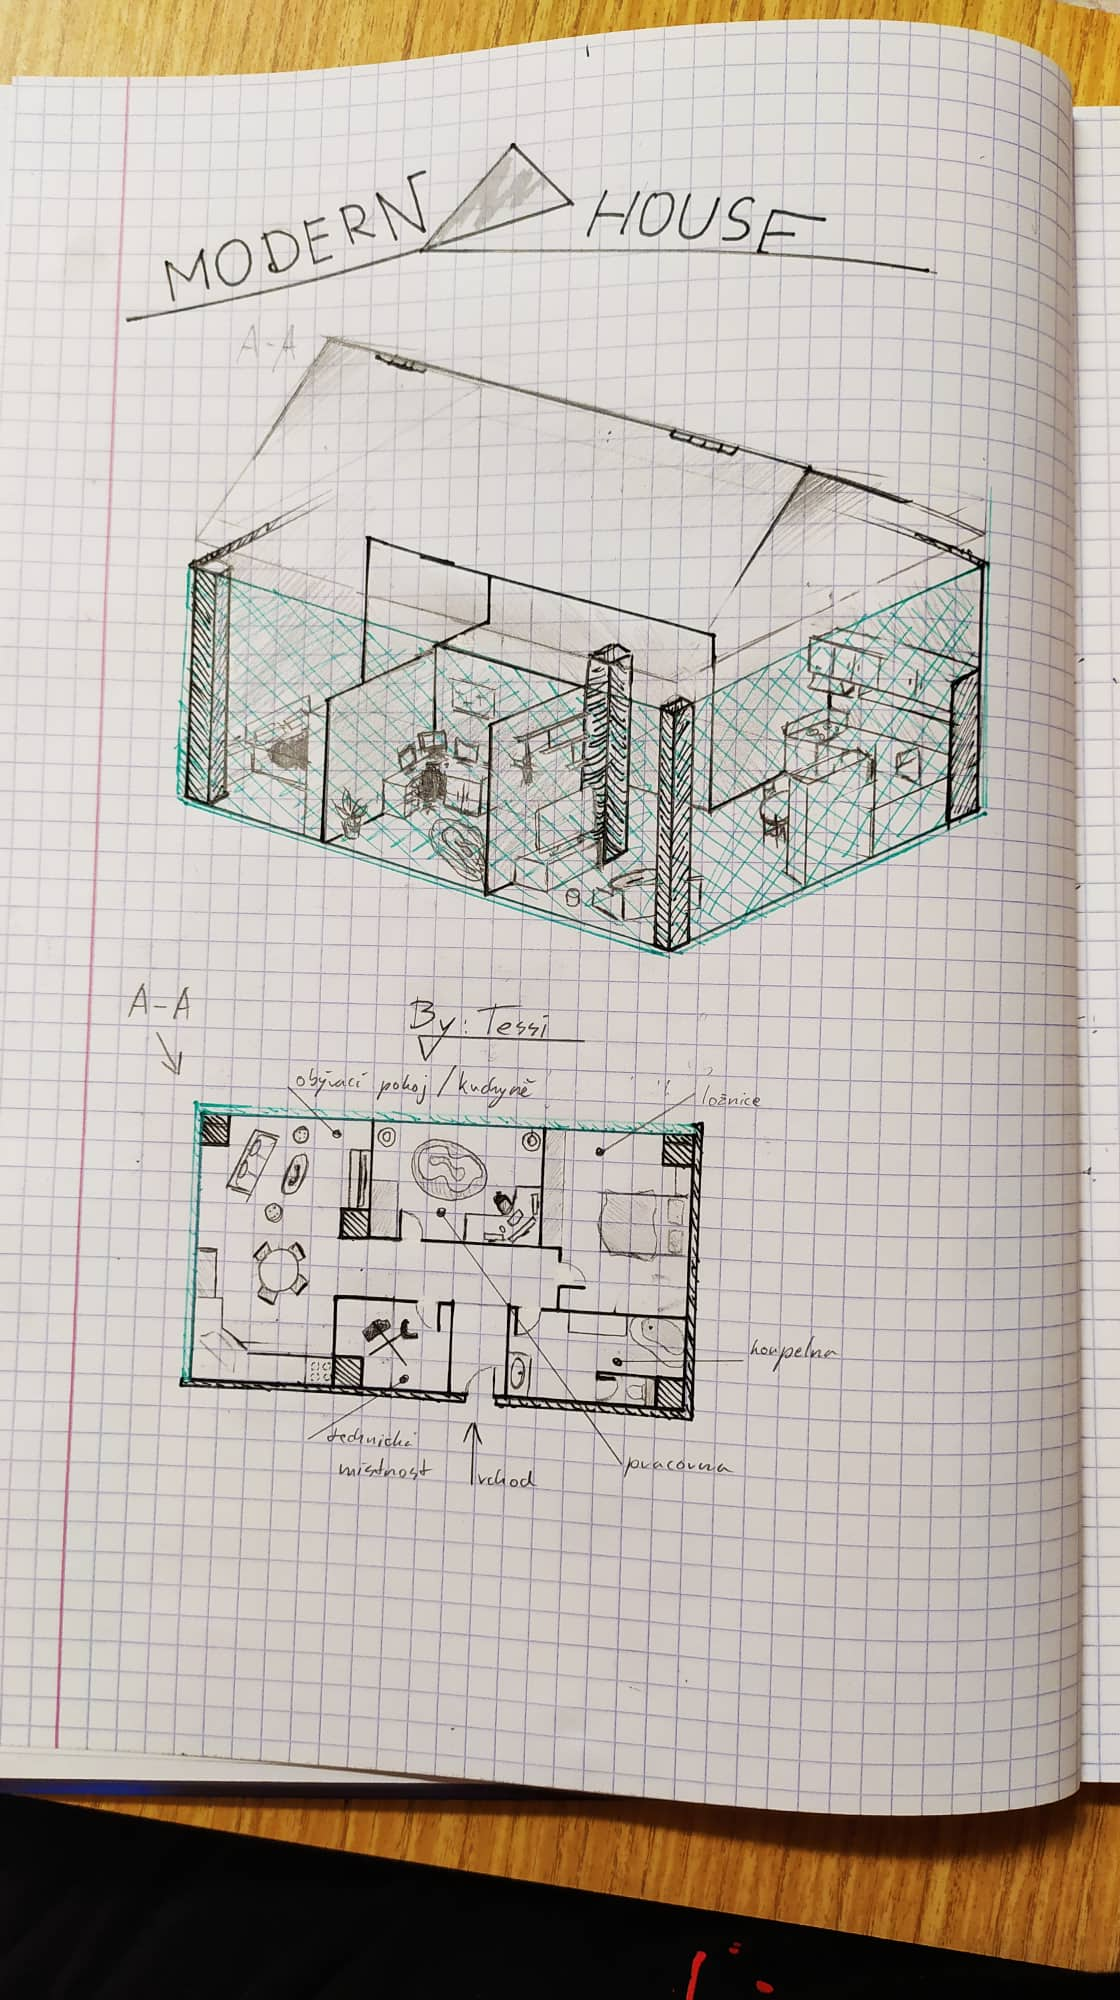 MODERN HOUSE
A-A
A-A
By: Tessi
obývací pokoj / kuchyně
ložnice
koupelna
technická
místnost
vchod
pracovna